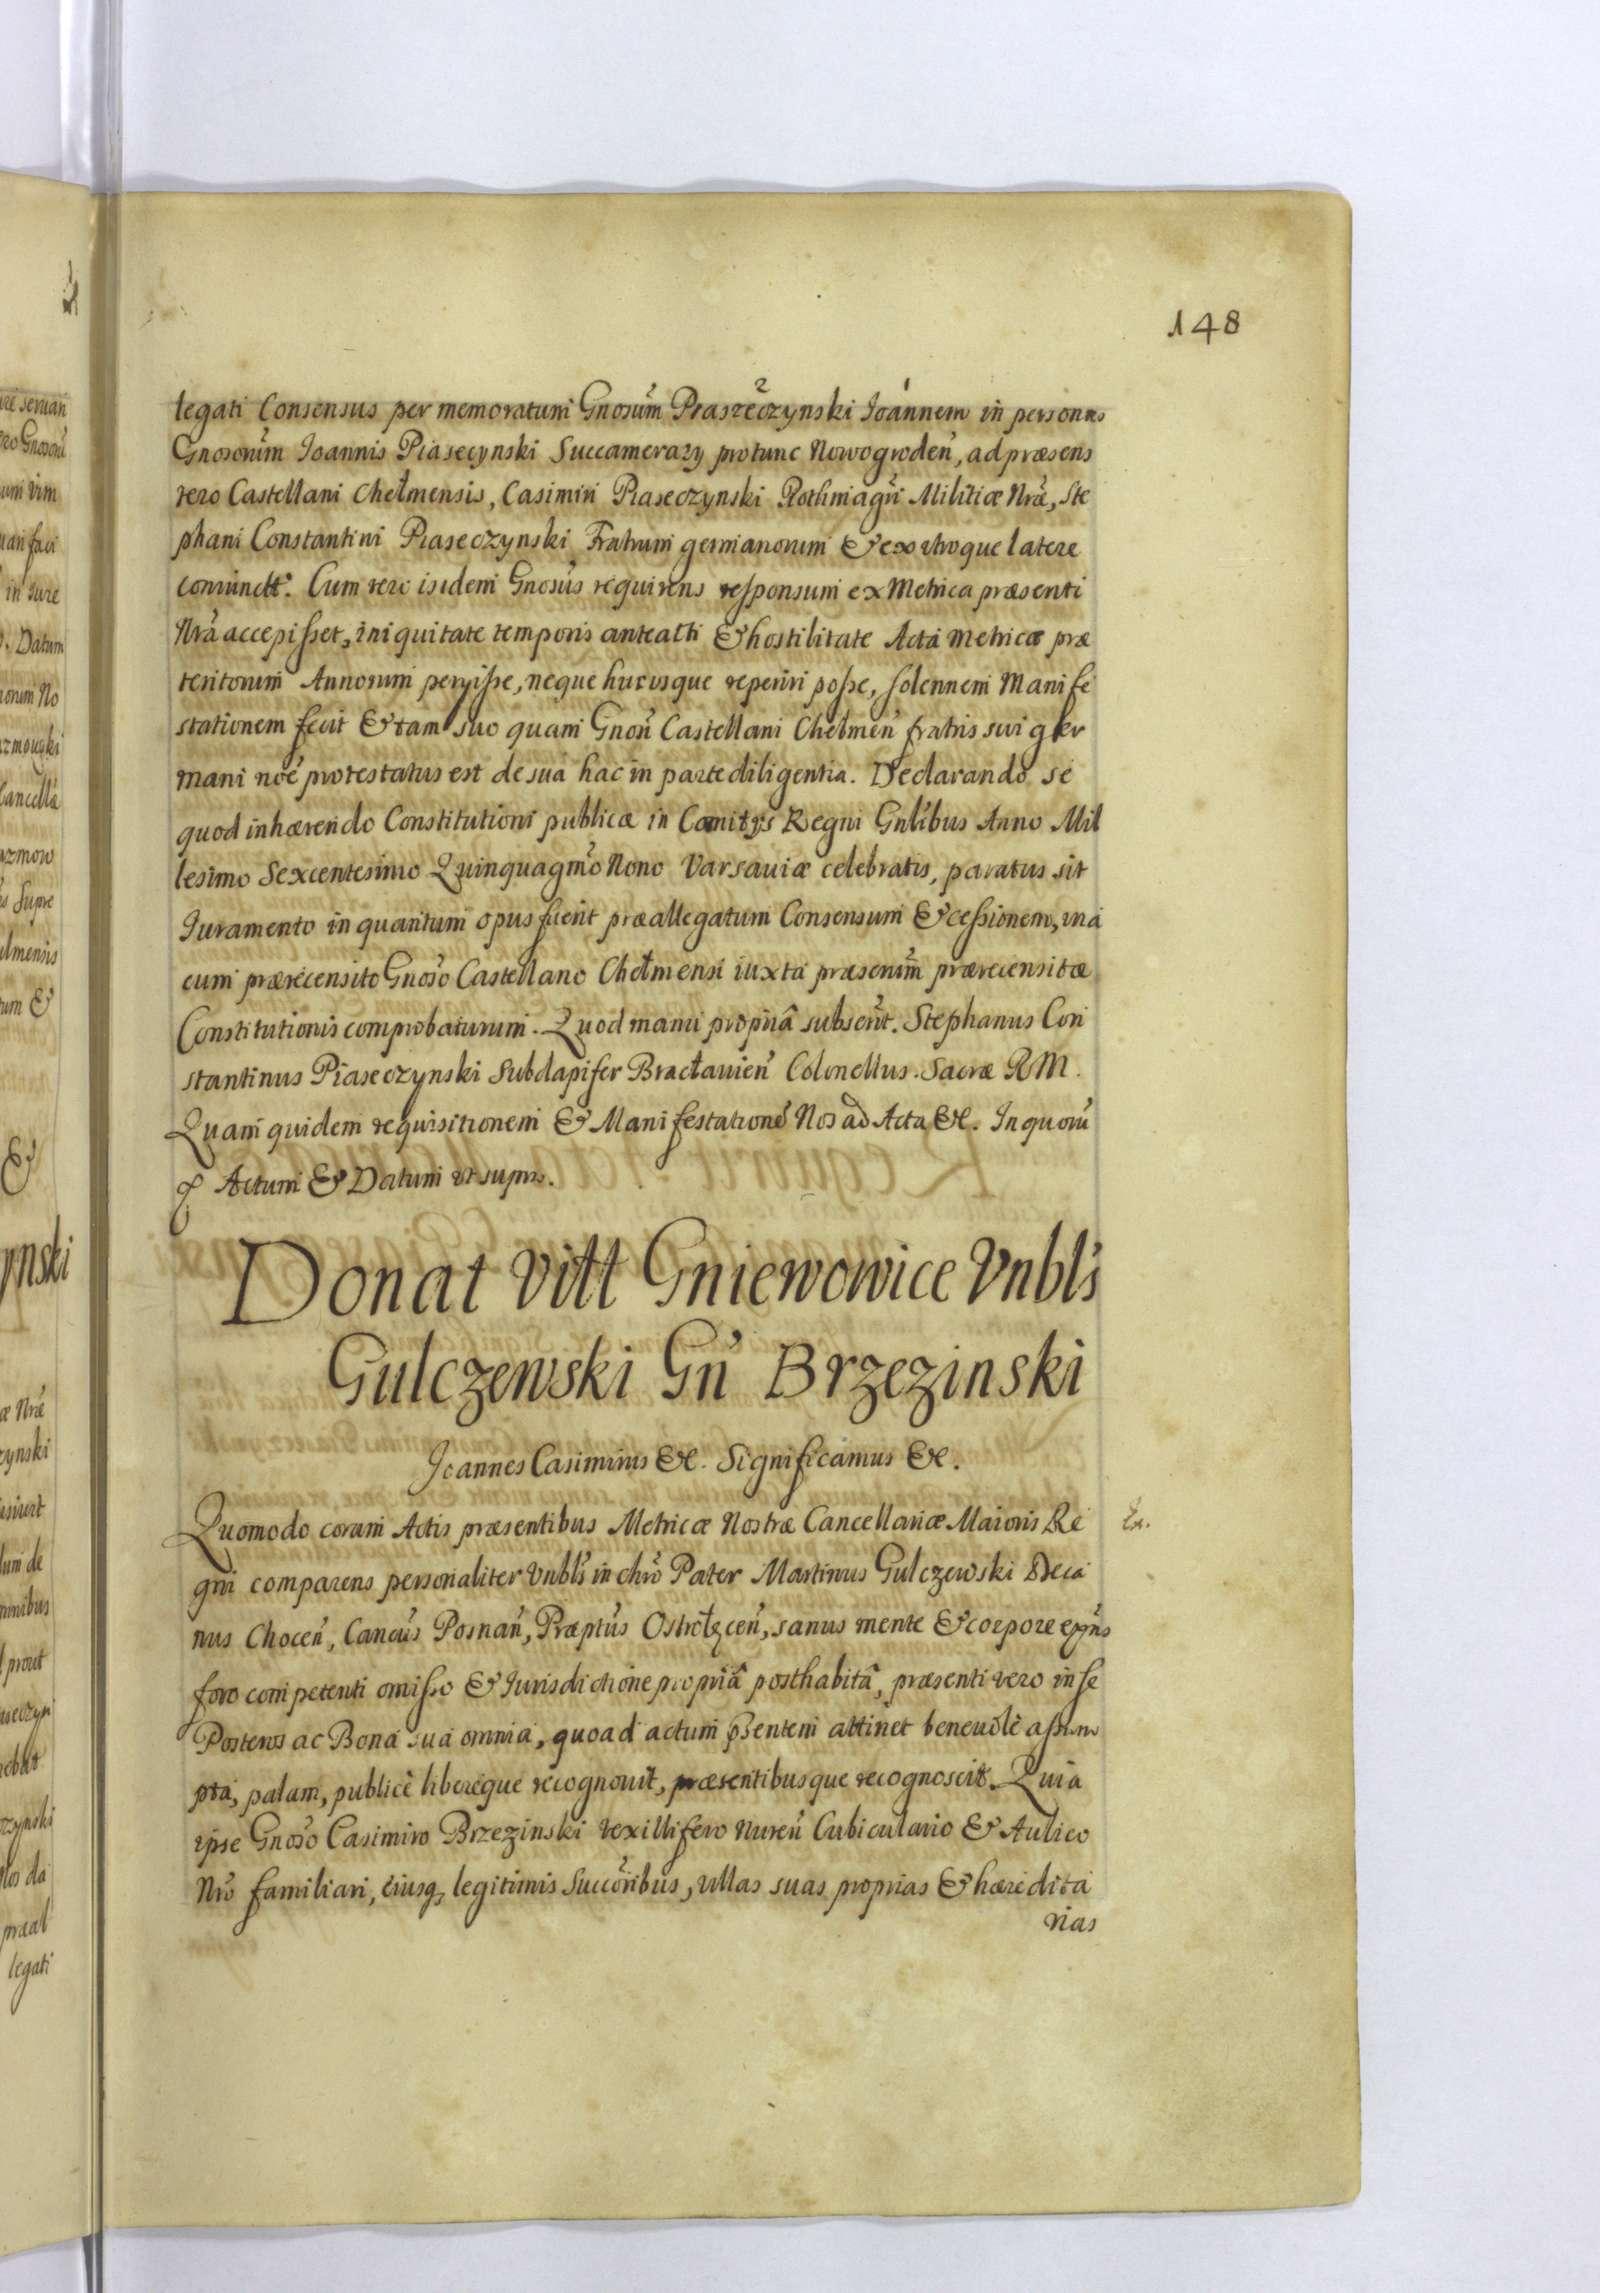 148
legati Consensus per memoratum Gnosum Praszeczynski Ioannem in personas
Gnosorum Ioannis Piasecynski Succamerary protunc Nowogroden, ad præsens
vero Castellani Chełmensis, Casimiri Piaseczynski Rothmagri Militiæ Nræ, Ste
phani Constantini Piaseczynski Fratrum germanorum & ex utroque latere
coniunct. Cum vero isidem Gnosus requirens responsum ex Metrica præsenti
Nra accepisset, iniquitate temporis anteacti & hostilitate Acta Metricæ præ
teritorum Annorum peryisse, neque hucusque reperiri posse, solennem Manife
stationem fecit & tam suo quam Gnosi Castellani Chelmen fratris sui ger
mani noe protestatus est de sua hac in parte diligentia. Declarando se
quod inhærendo Constitutioni publicæ in Comitys Regni Gnlibus Anno Mil
lesimo Sexcentesimo Quinquagmo Nono Varsaviæ celebratis, paratus sit
Iuramento in quantum opus fuerit præallegatum Consensum & cessionem, una
cum prærecensito Gnoso Castellano Chełmensi iuxta præscrium prærecensitæ
Constitutionis comprobaturum. Quod manu propria subscrit. Stephanus Con
stantinus Piaseczynski Subdapifer Bracławien Colonellus Sacræ R M.
Quam quidem requisitionem & Manifestatione Nos ad Acta &c. In quoru
Actum & Datum ut supra.
Donat Vill Gniewowice Vnbls
Gulczewski Gn Brzezinski
Ioannes Casimirus &c. Significamus &c.
Quomodo coram Actis præsentibus Metricæ Nostræ Cancellariæ Maioris Re
gni comparens personaliter Vnbls in chro Pater Martinus Gulczewski Deca
nus Chocen, Cancus Posnan, Præptus Ostrołęcen, sanus mente & corpore exns
foro competenti omisso & Iurisdictione propriâ posthabitâ, præsenti vero in se
Posteros ac Bona sua omnia, quoad actum psentem attinet benevole assum
pta, palam, publicè libereque recognovit, præsentibusque recognoscit. Quia
ipse Gnoso Casimiro Brzezinski Vexillifero Nuren Cubiculario & Aulico
Nro familiari, eiusq legitimis Succoribus, Villas suas proprias & hæredita
rias